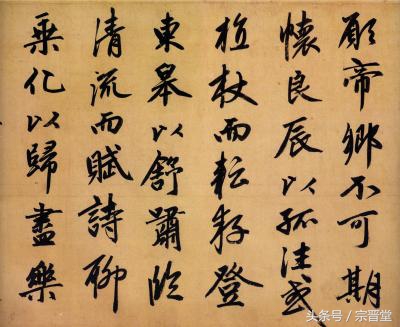 願帝鄉不可期
懷良辰以孤往或
植杖而耘耔登
東皋以舒嘯臨
清流而賦詩聊
乘化以歸盡樂
头条号 / 宗晋堂